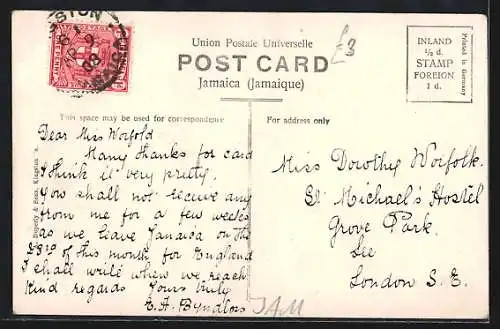 Union Postale Universelle
POST CARD
Jamaica (Jamaique)
£3
INLAND
½ d.
STAMP
FOREIGN
1 d.
Printed in Germany
This space may be used for correspondence
For address only
Dear Miss Worfold
Many thanks for card
I think it very pretty.
You shall not receive any
from me for a few weeks
as we leave Jamaica on the
23rd of this month for England
I shall write when we reach
Kind regards Yours truly
Miss Dorothy Worfolk.
St Michael's Hostel
Grove Park.
Lee
London S. E.
JAM